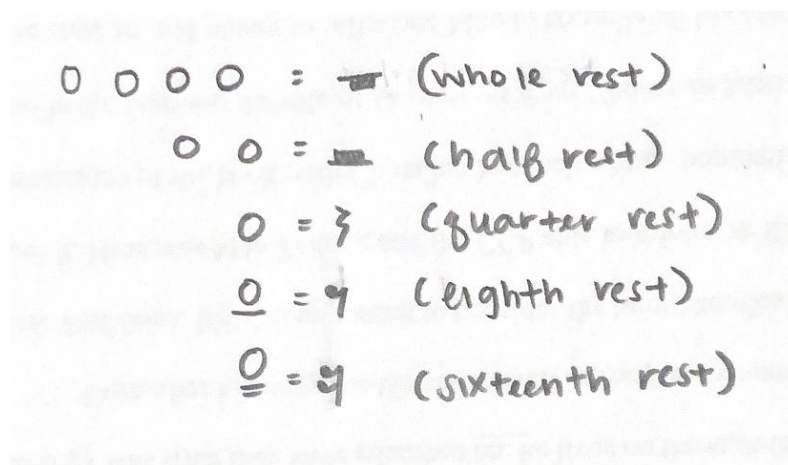 0 0 0 0 = 𝄻 (whole rest)
0 0 = 𝄼 (half rest)
0 = 𝄽 (quarter rest)
0̲ = 𝄾 (eighth rest)
0̳ = 𝄿 (sixteenth rest)